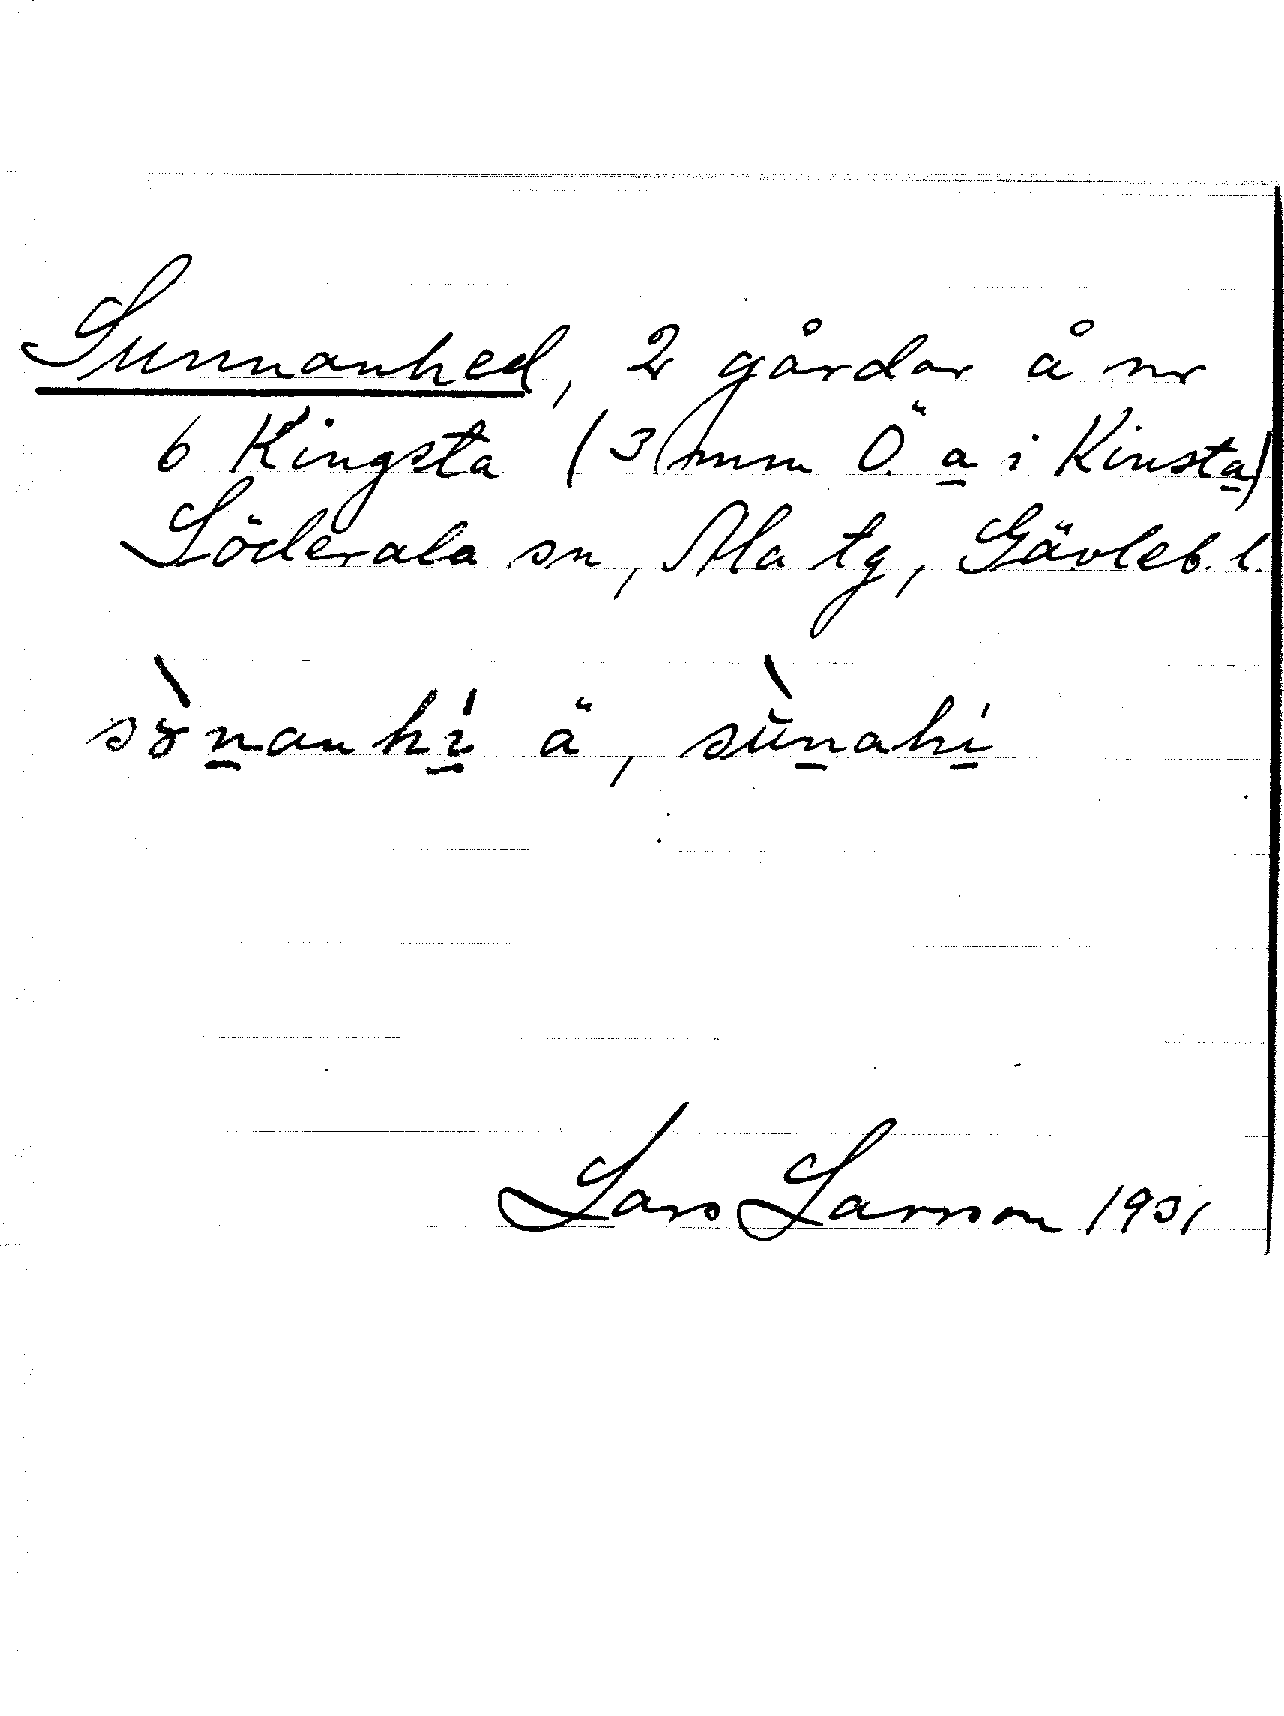 Sunnanhed, 2 gårdar å nr
6 Kingsta (3 mm Ö. a i Kinsta)
Söderala sn, Ala tg, Gävleb. l.
sùnanhí ä, sùnahí
Lars Larsson 1931